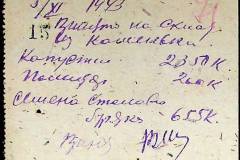 5/XI 1943
15
Принято на склад
из Каменки
Капусты 2350 к
Помидор 200 к
Семена Столово
буряка 655 к